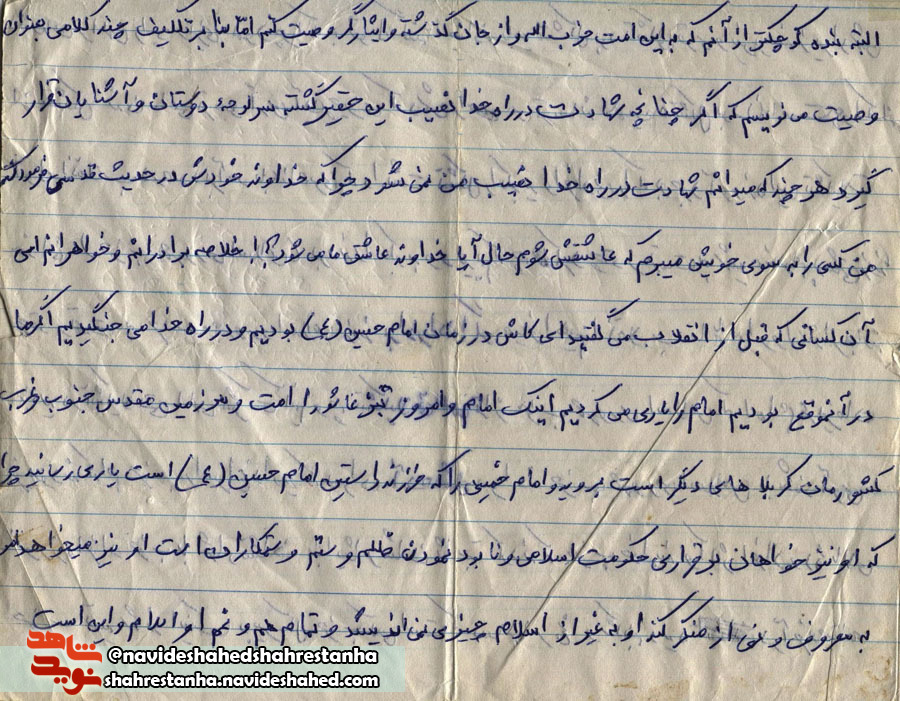 البته بنده کوچکتر از آنم که به این امت حزب الله و از جان گذشته و ایثارگر وصیت کنم اما بنا بر تکلیف چند کلامی بعنوان
وصیت می نویسم که اگر چنانچه شهادت در راه خدا نصیب این حقیر گشته سرلوحه دوستان و آشنایان قرار
گیرد هر چند که میدانم شهادت در راه خدا نصیب من نمی شد چرا که خداوند خودش در حدیث قدسی فرموده که
من کسی را به سوی خویش میبرم که عاشقش شوم حال آیا خداوند عاشق ما می شود؟! خلاصه برادرانم و خواهرانم ای
آن کسانی که قبل از انقلاب می گفتید ای کاش در زمان امام حسین (ع) بودیم و در راه خدا می جنگیدیم اگر ما
در آنموقع بودیم امام را یاری می کردیم اینک امام و امروز نیز عاشورا است و سرزمین مقدس جنوب و غرب
کشورمان کربلا های دیگر است بروید و امام خمینی را که فرزند راستین امام حسین (ع) است یاری رسانید چرا
که او نیز خواهان برقراری حکومت اسلامی و نابود نمودن ظلم و ستم و ستمکاران است او نیز میخواهد امر
به معروف و نهی از منکر کند او به غیر از اسلام چیزی نمی اندیشد و تمام هم و غم او اسلام و این است
نوید شاهد
@navideshahedshahrestanha
shahrestanha.navideshahed.com